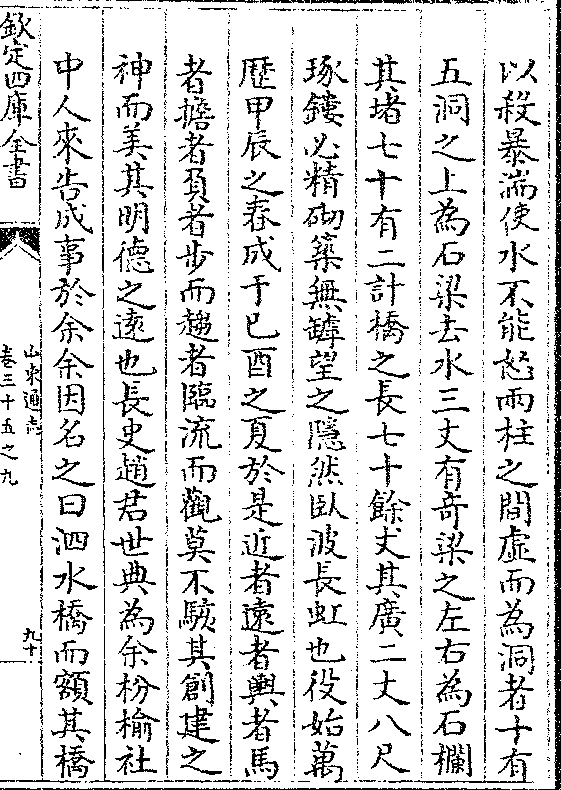 以殺暴湍使水不能怒而柱之間虛而為洞者十有
五洞之上為石梁去水三丈有奇梁之左右為石欄
其堵七十有二計橋之長七十餘丈其廣二丈八尺
琢鏤必精砌築無罅望之隱然臥波長虹也役始萬
歷甲辰之春成于已酉之夏於是近者遠者輿者馬
者擔者負者步而趨者臨流而觀莫不駭其創建之
神而美其明德之遠也長史趙君世典為余枌榆社
中人來告成事於余余因名之曰泗水橋而額其橋
欽定四庫全書
山東通志
卷三十五之九
九十